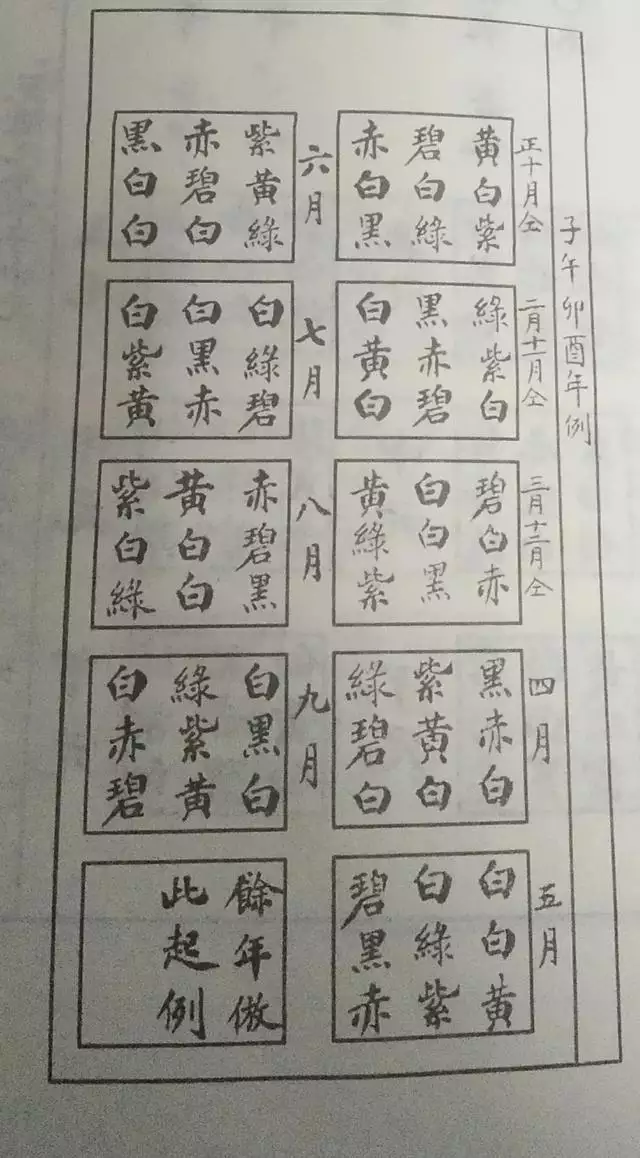 子午卯酉年例
正十月仝
黃白紫
碧白綠
赤白黑
二月十一月仝
綠紫白
黑赤碧
白黃白
三月十二月仝
碧白赤
白白黑
黃綠紫
四月
黑赤白
紫黃白
綠碧白
五月
白白黃
白綠紫
碧黑赤
六月
紫黃綠
赤碧白
黑白白
七月
白綠碧
白黑赤
白紫黃
八月
赤碧黑
黃白白
紫白綠
九月
白黑白
綠紫黃
白赤碧
餘年倣
此起例